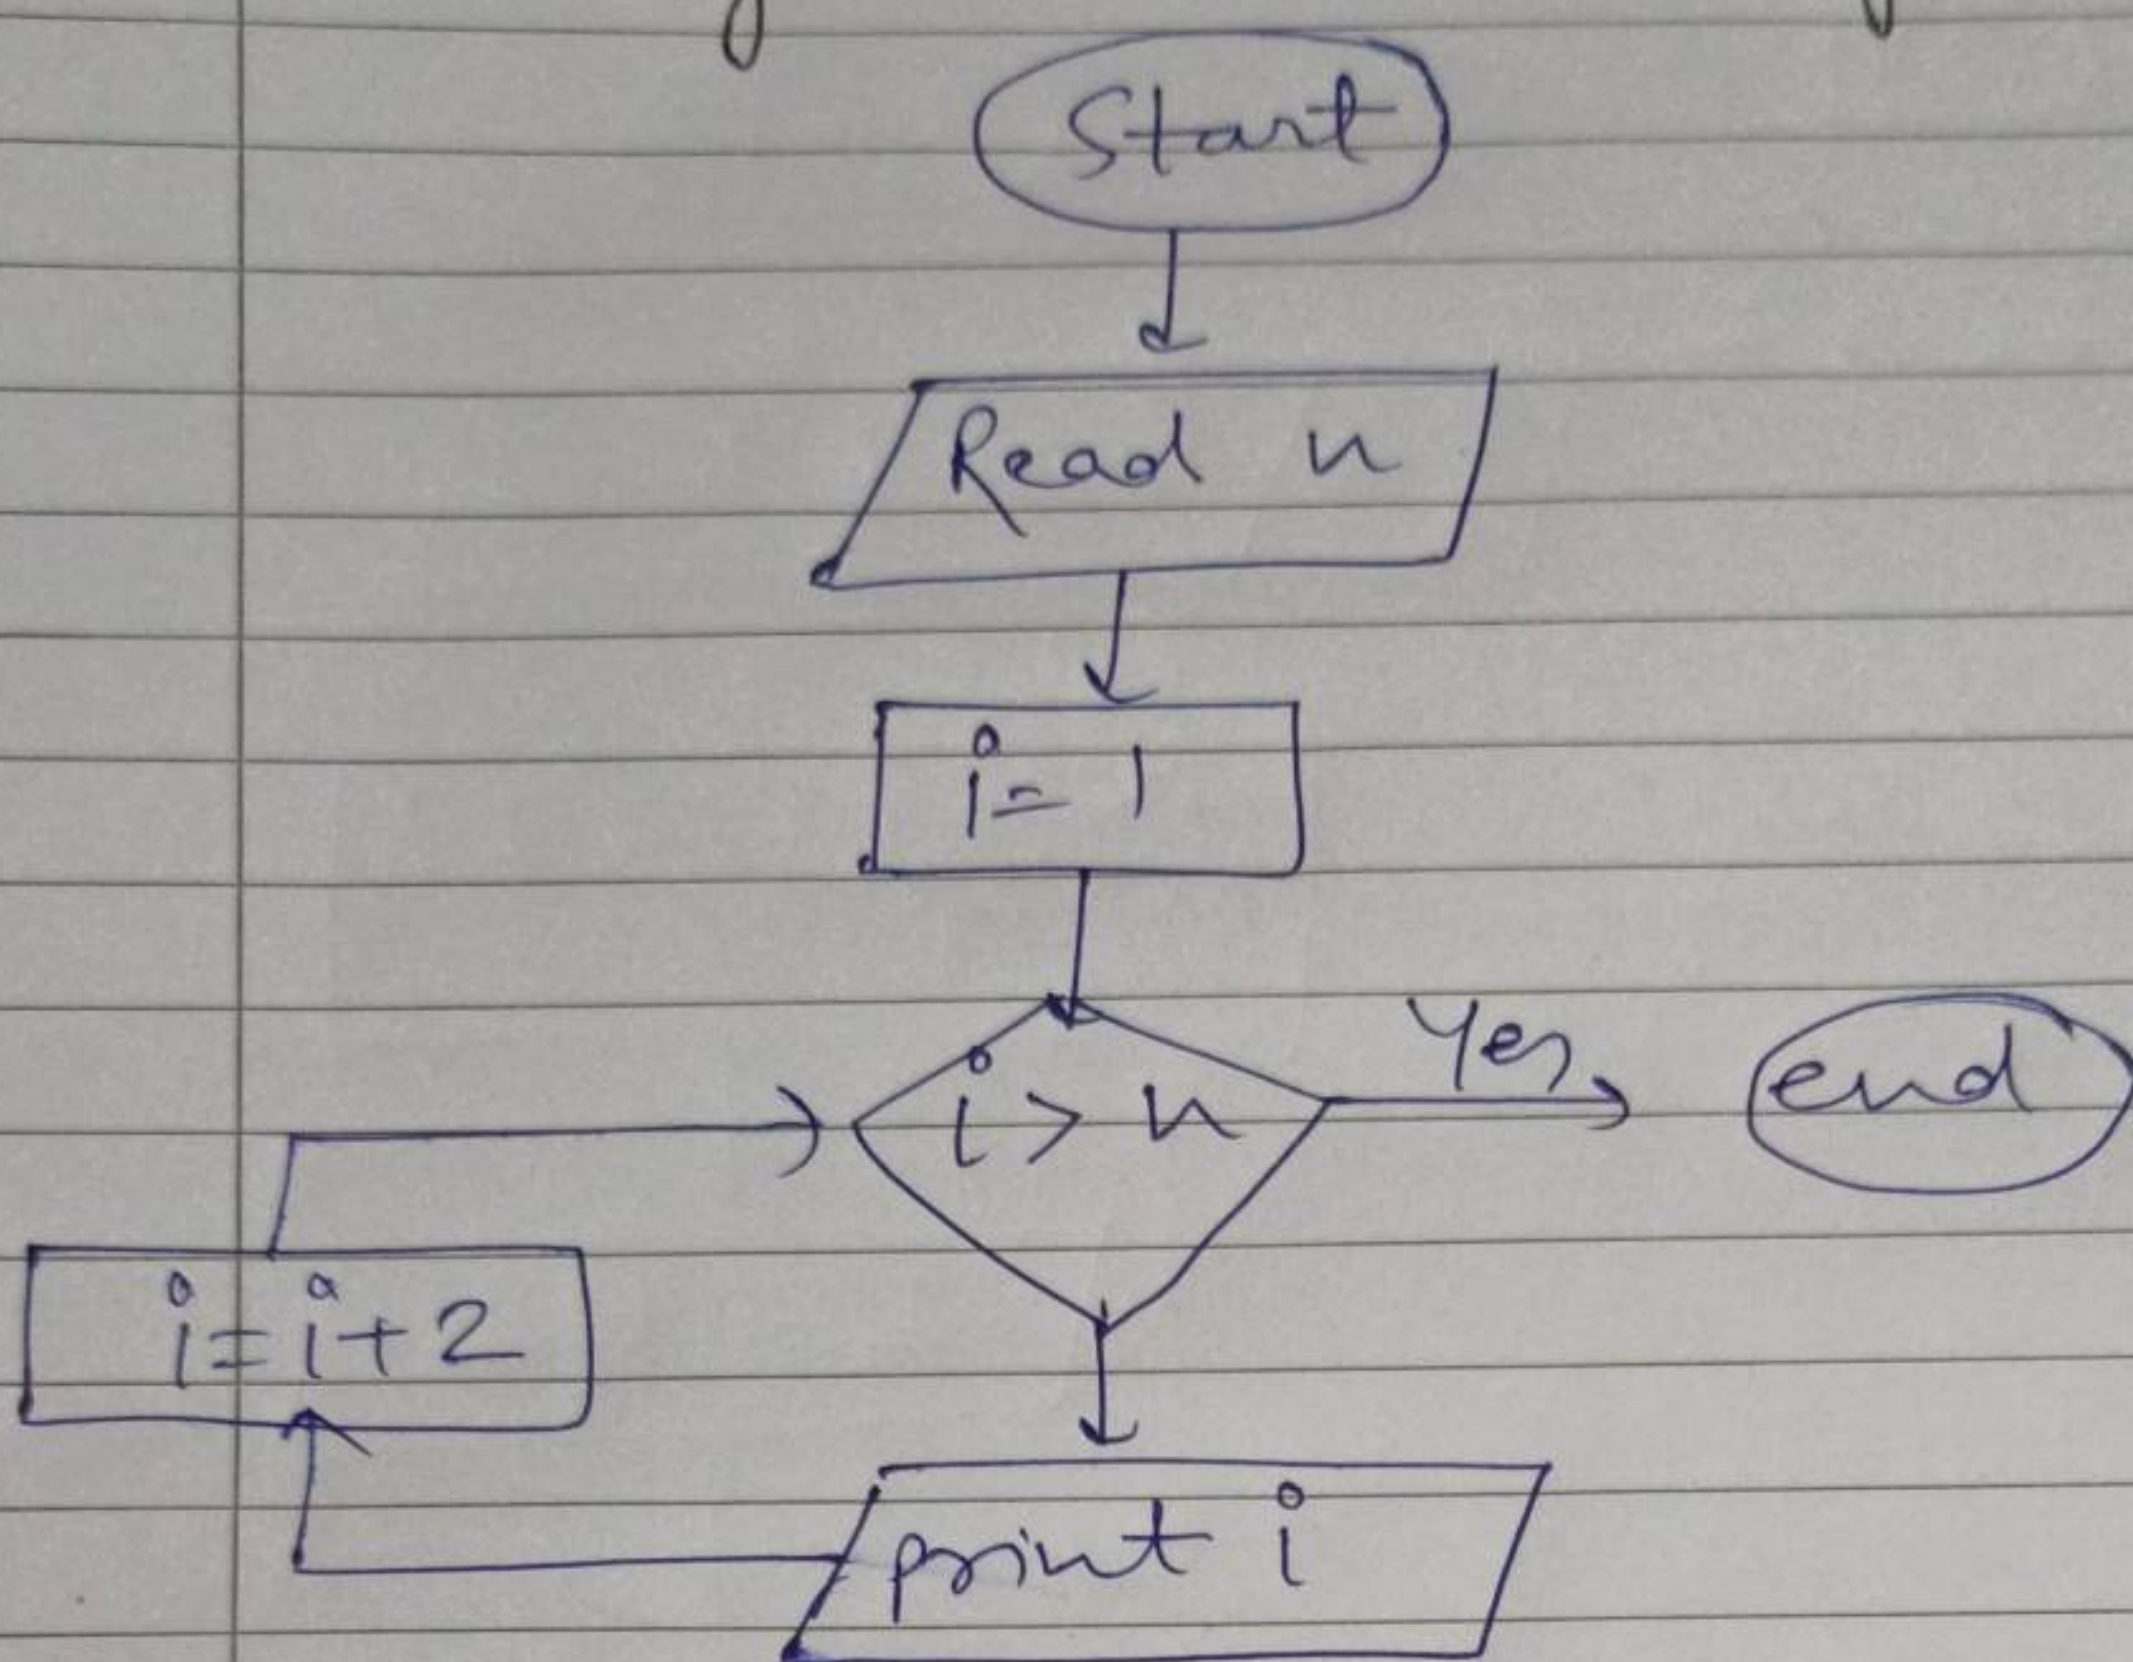 Start
Read n
i = 1
i > n
Yes
end
i = i + 2
print i